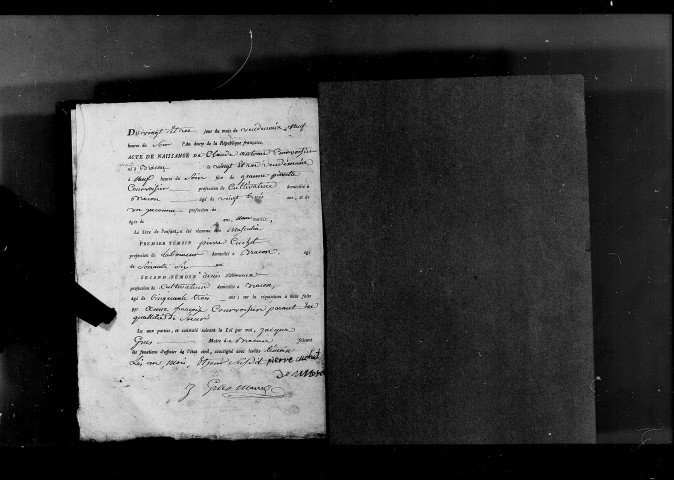 Du vingt et un jour du mois de vendemiaire, Neuf
heures du Soir l'An douze de la République française.
ACTE DE NAISSANCE DE Claude antoine Courvoisier
né à Bracon le vingt et un vendémiaire
à Neuf heures du Soir fils de jeanne pierrette
Courvoisier profession de Cultivatrice domicilié à
Bracon âgé de vingt trois ans, et de
un inconnu profession de
âgée de ans, mariés,
Le Sexe de l'enfant a été reconnu être Masculin
PREMIER TÉMOIN pierre Cuchet
profession de Laboureur domicilié à Bracon, âgé
de Soixante Six ans
SECOND TÉMOIN denis
profession de Cultivateur domicilié à Bracon,
âgé de Cinquante trois ans; sur la réquisition à nous faite
par anne françoise Courvoisier
qualité de Soeur
Lu aux parties, et constaté suivant la Loi par moi, jacque
Gros Maire de Bracon faisant
les fonctions d'officier de l'état civil, soussigné avec les témoins
Les an, mois, et jour Susdit pierre cuchet
J Gros maire